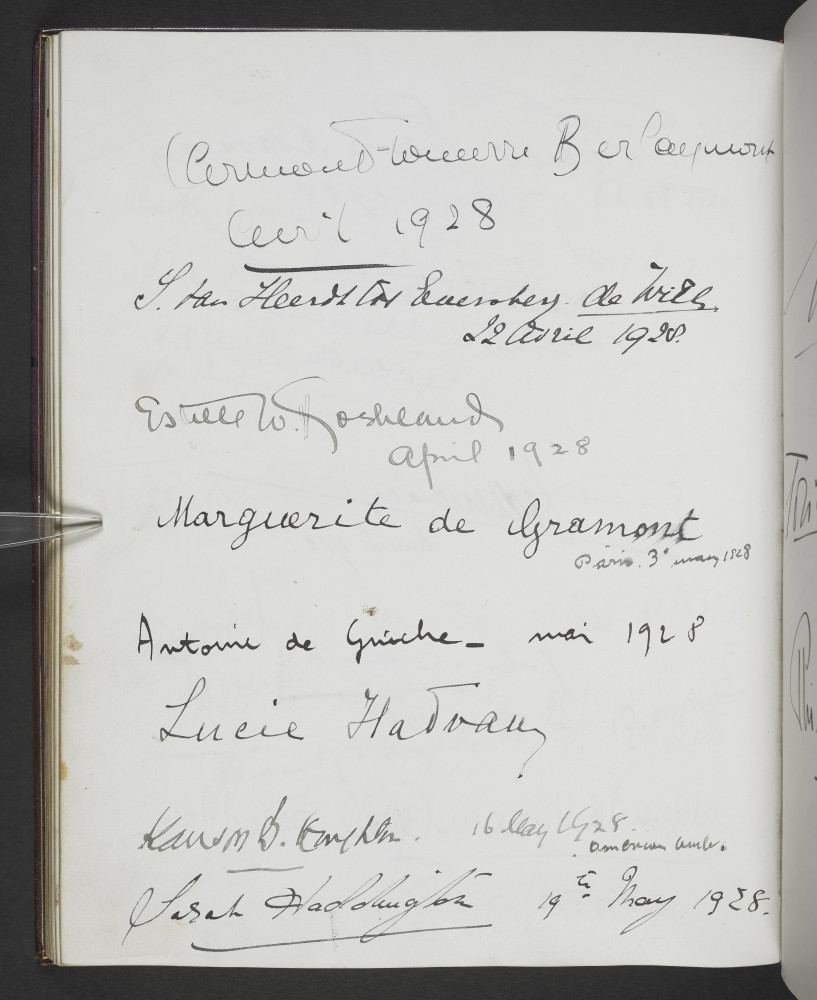 Clermont-Tonnerre Berlaymont
Avril 1928
S. van Heerdt tot Eversberg. de With.
22 Avril 1928.
Estelle W.
April 1928
Marguerite de Gramont
Paris. 3 May 1928
Antoine de Guiche - mai 1928
Lucie Hatvany
B. Houghton. 16 May 1928.
american
Sarah Haddington 19th May 1928.